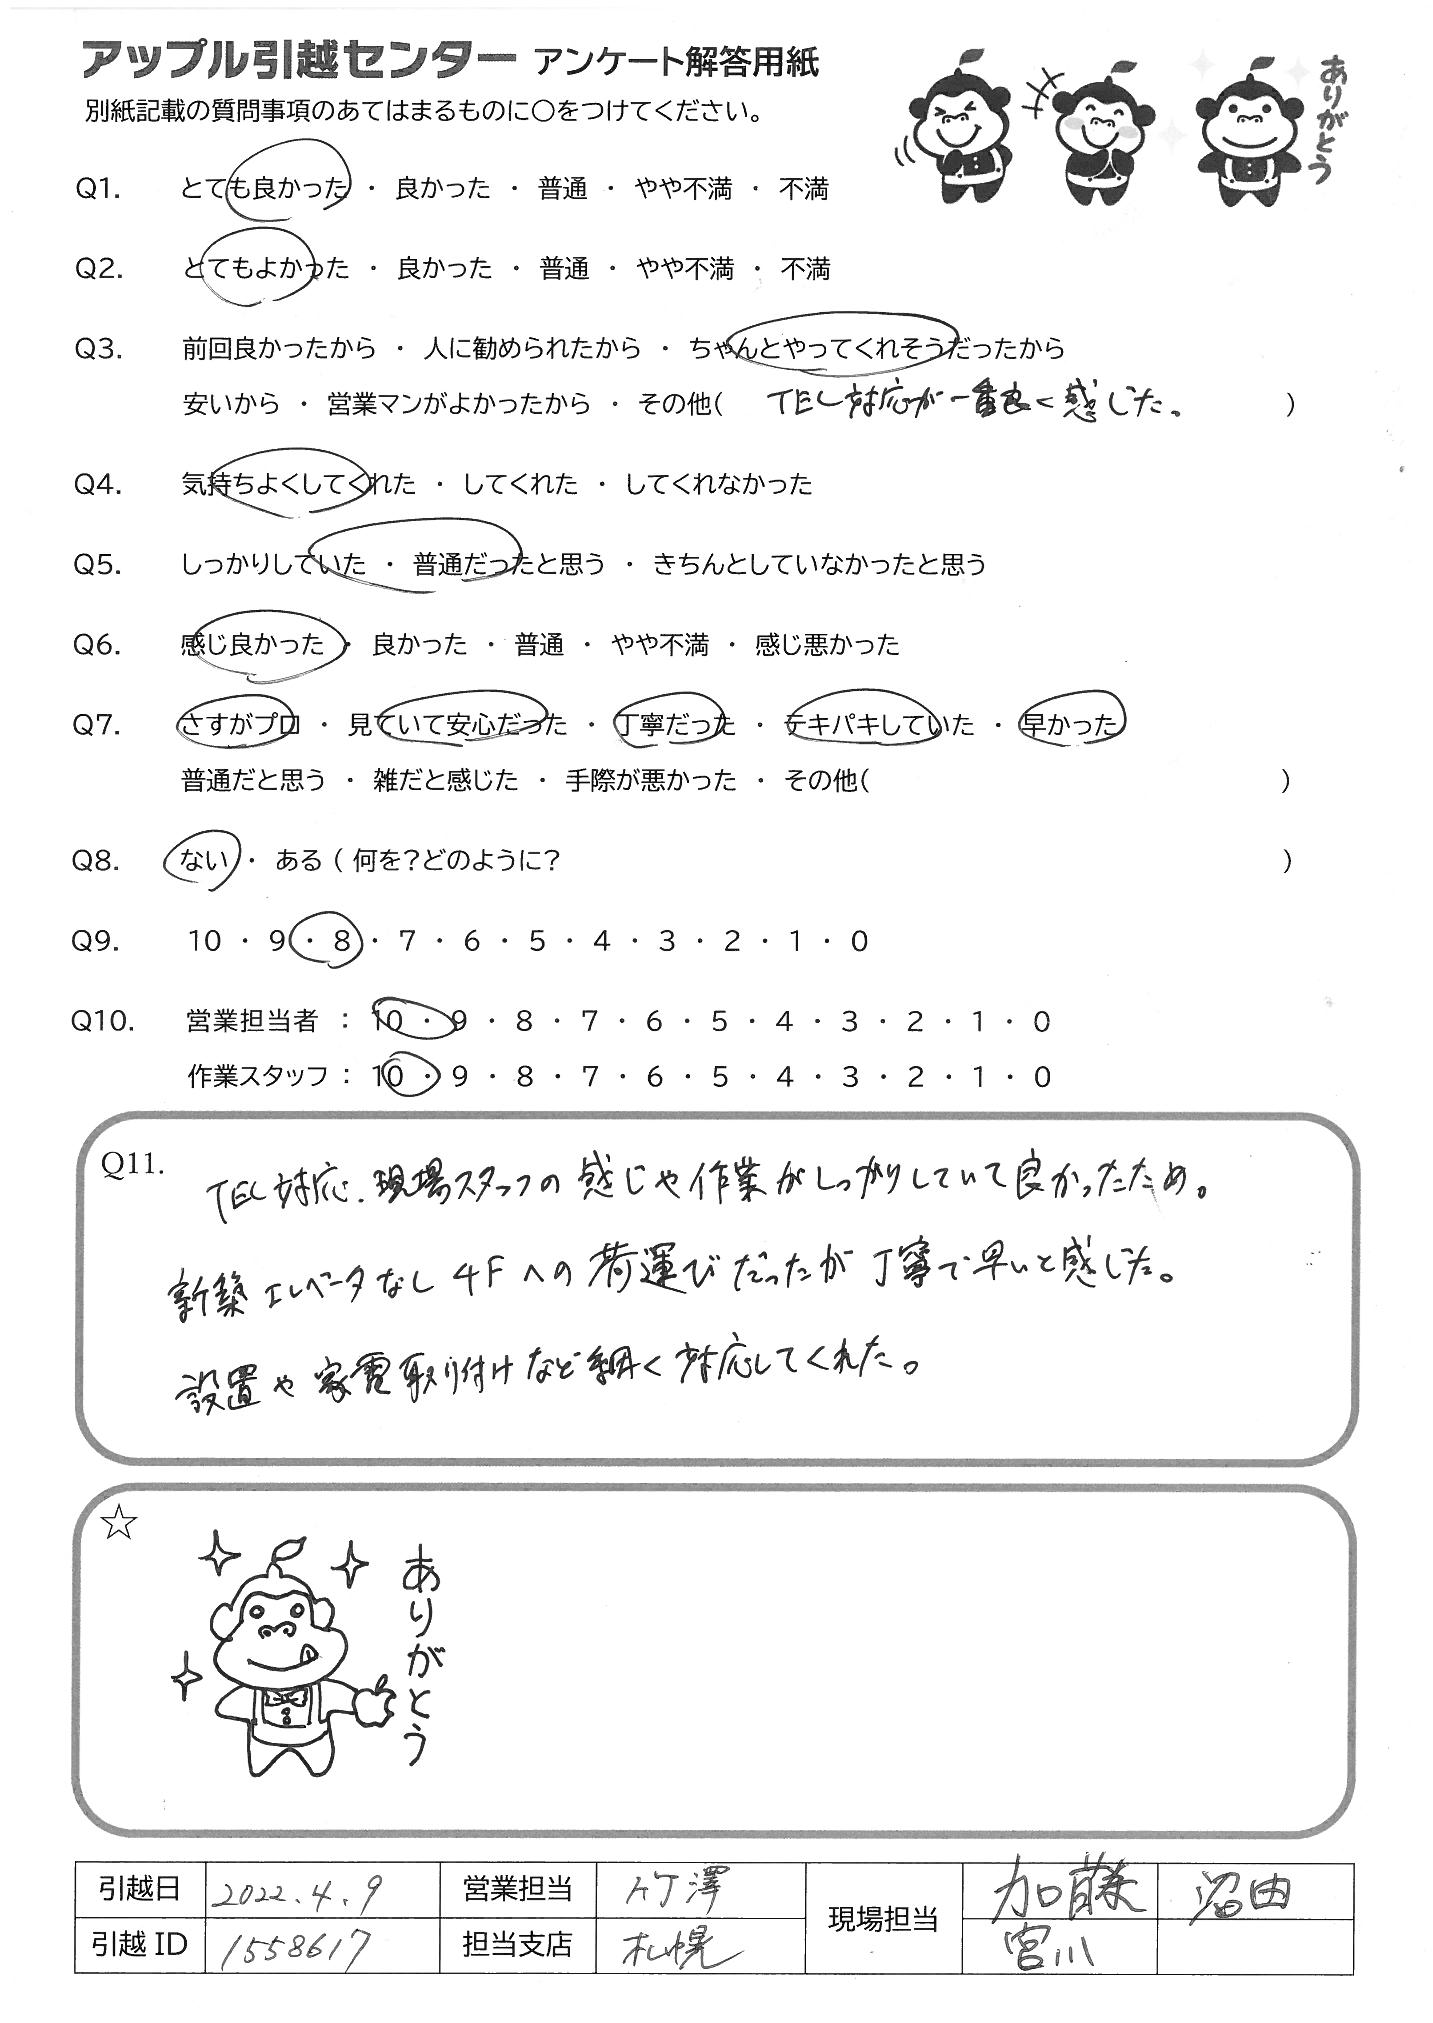 アップル引越センター アンケート解答用紙
別紙記載の質問事項のあてはまるものに〇をつけてください。
ありがとう
Q1. とても良かった ・ 良かった ・ 普通 ・ やや不満 ・ 不満
Q2. とてもよかった ・ 良かった ・ 普通 ・ やや不満 ・ 不満
Q3. 前回良かったから ・ 人に勧められたから ・ ちゃんとやってくれそうだったから
安いから ・ 営業マンがよかったから ・ その他( TEL対応が一番良く感じた。 )
Q4. 気持ちよくしてくれた ・ してくれた ・ してくれなかった
Q5. しっかりしていた ・ 普通だったと思う ・ きちんとしていなかったと思う
Q6. 感じ良かった ・ 良かった ・ 普通 ・ やや不満 ・ 感じ悪かった
Q7. さすがプロ ・ 見ていて安心だった ・ 丁寧だった ・ テキパキしていた ・ 早かった
普通だと思う ・ 雑だと感じた ・ 手際が悪かった ・ その他( )
Q8. ない ・ ある ( 何を?どのように? )
Q9. 10 ・ 9 ・ 8 ・ 7 ・ 6 ・ 5 ・ 4 ・ 3 ・ 2 ・ 1 ・ 0
Q10. 営業担当者 : 10 ・ 9 ・ 8 ・ 7 ・ 6 ・ 5 ・ 4 ・ 3 ・ 2 ・ 1 ・ 0
作業スタッフ : 10 ・ 9 ・ 8 ・ 7 ・ 6 ・ 5 ・ 4 ・ 3 ・ 2 ・ 1 ・ 0
Q11. TEL対応、現場スタッフの感じや作業がしっかりしていて良かったため。
新築エレベータなし4Fへの荷運びだったが丁寧で早いと感じた。
設置や家電取り付けなど細く対応してくれた。
☆
ありがとう
引越日 2022.4.9 営業担当 竹澤 現場担当 加藤 沼田
引越ID 1558617 担当支店 札幌 宮川